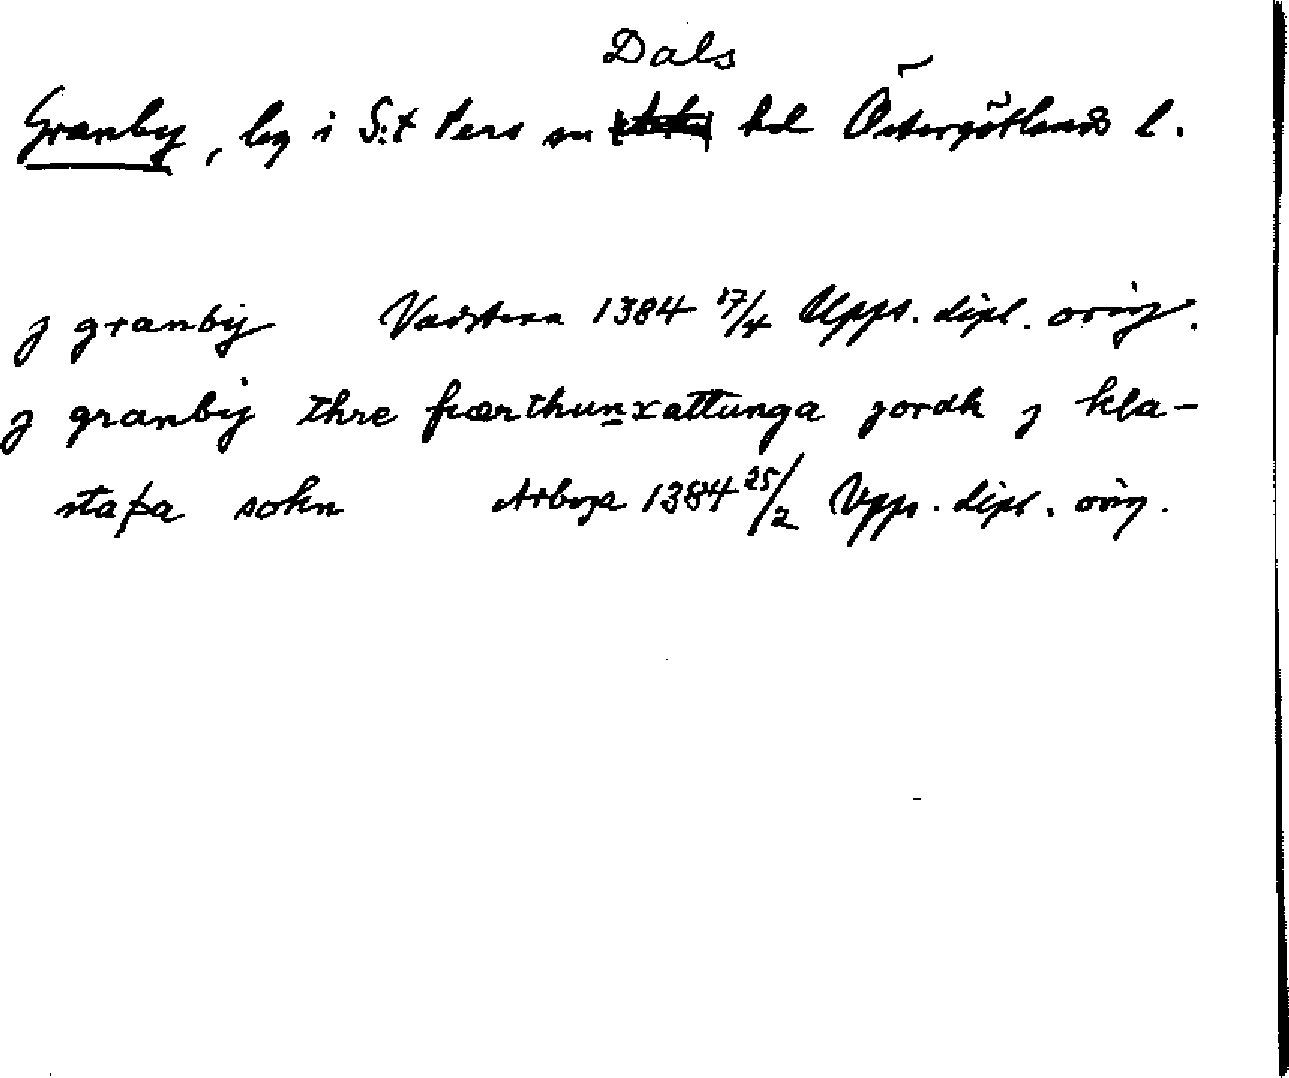 Dals
Granby, by i S:t Pers sn hd Östergötlands l.
j granbÿ Vadstena 1384 17/4 Upps. dipl. orig.
j granbÿ thre fiærthunxattunga jordh j kla-
stapa sokn Arboga 1384 25/2 Upps. dipl. orig.